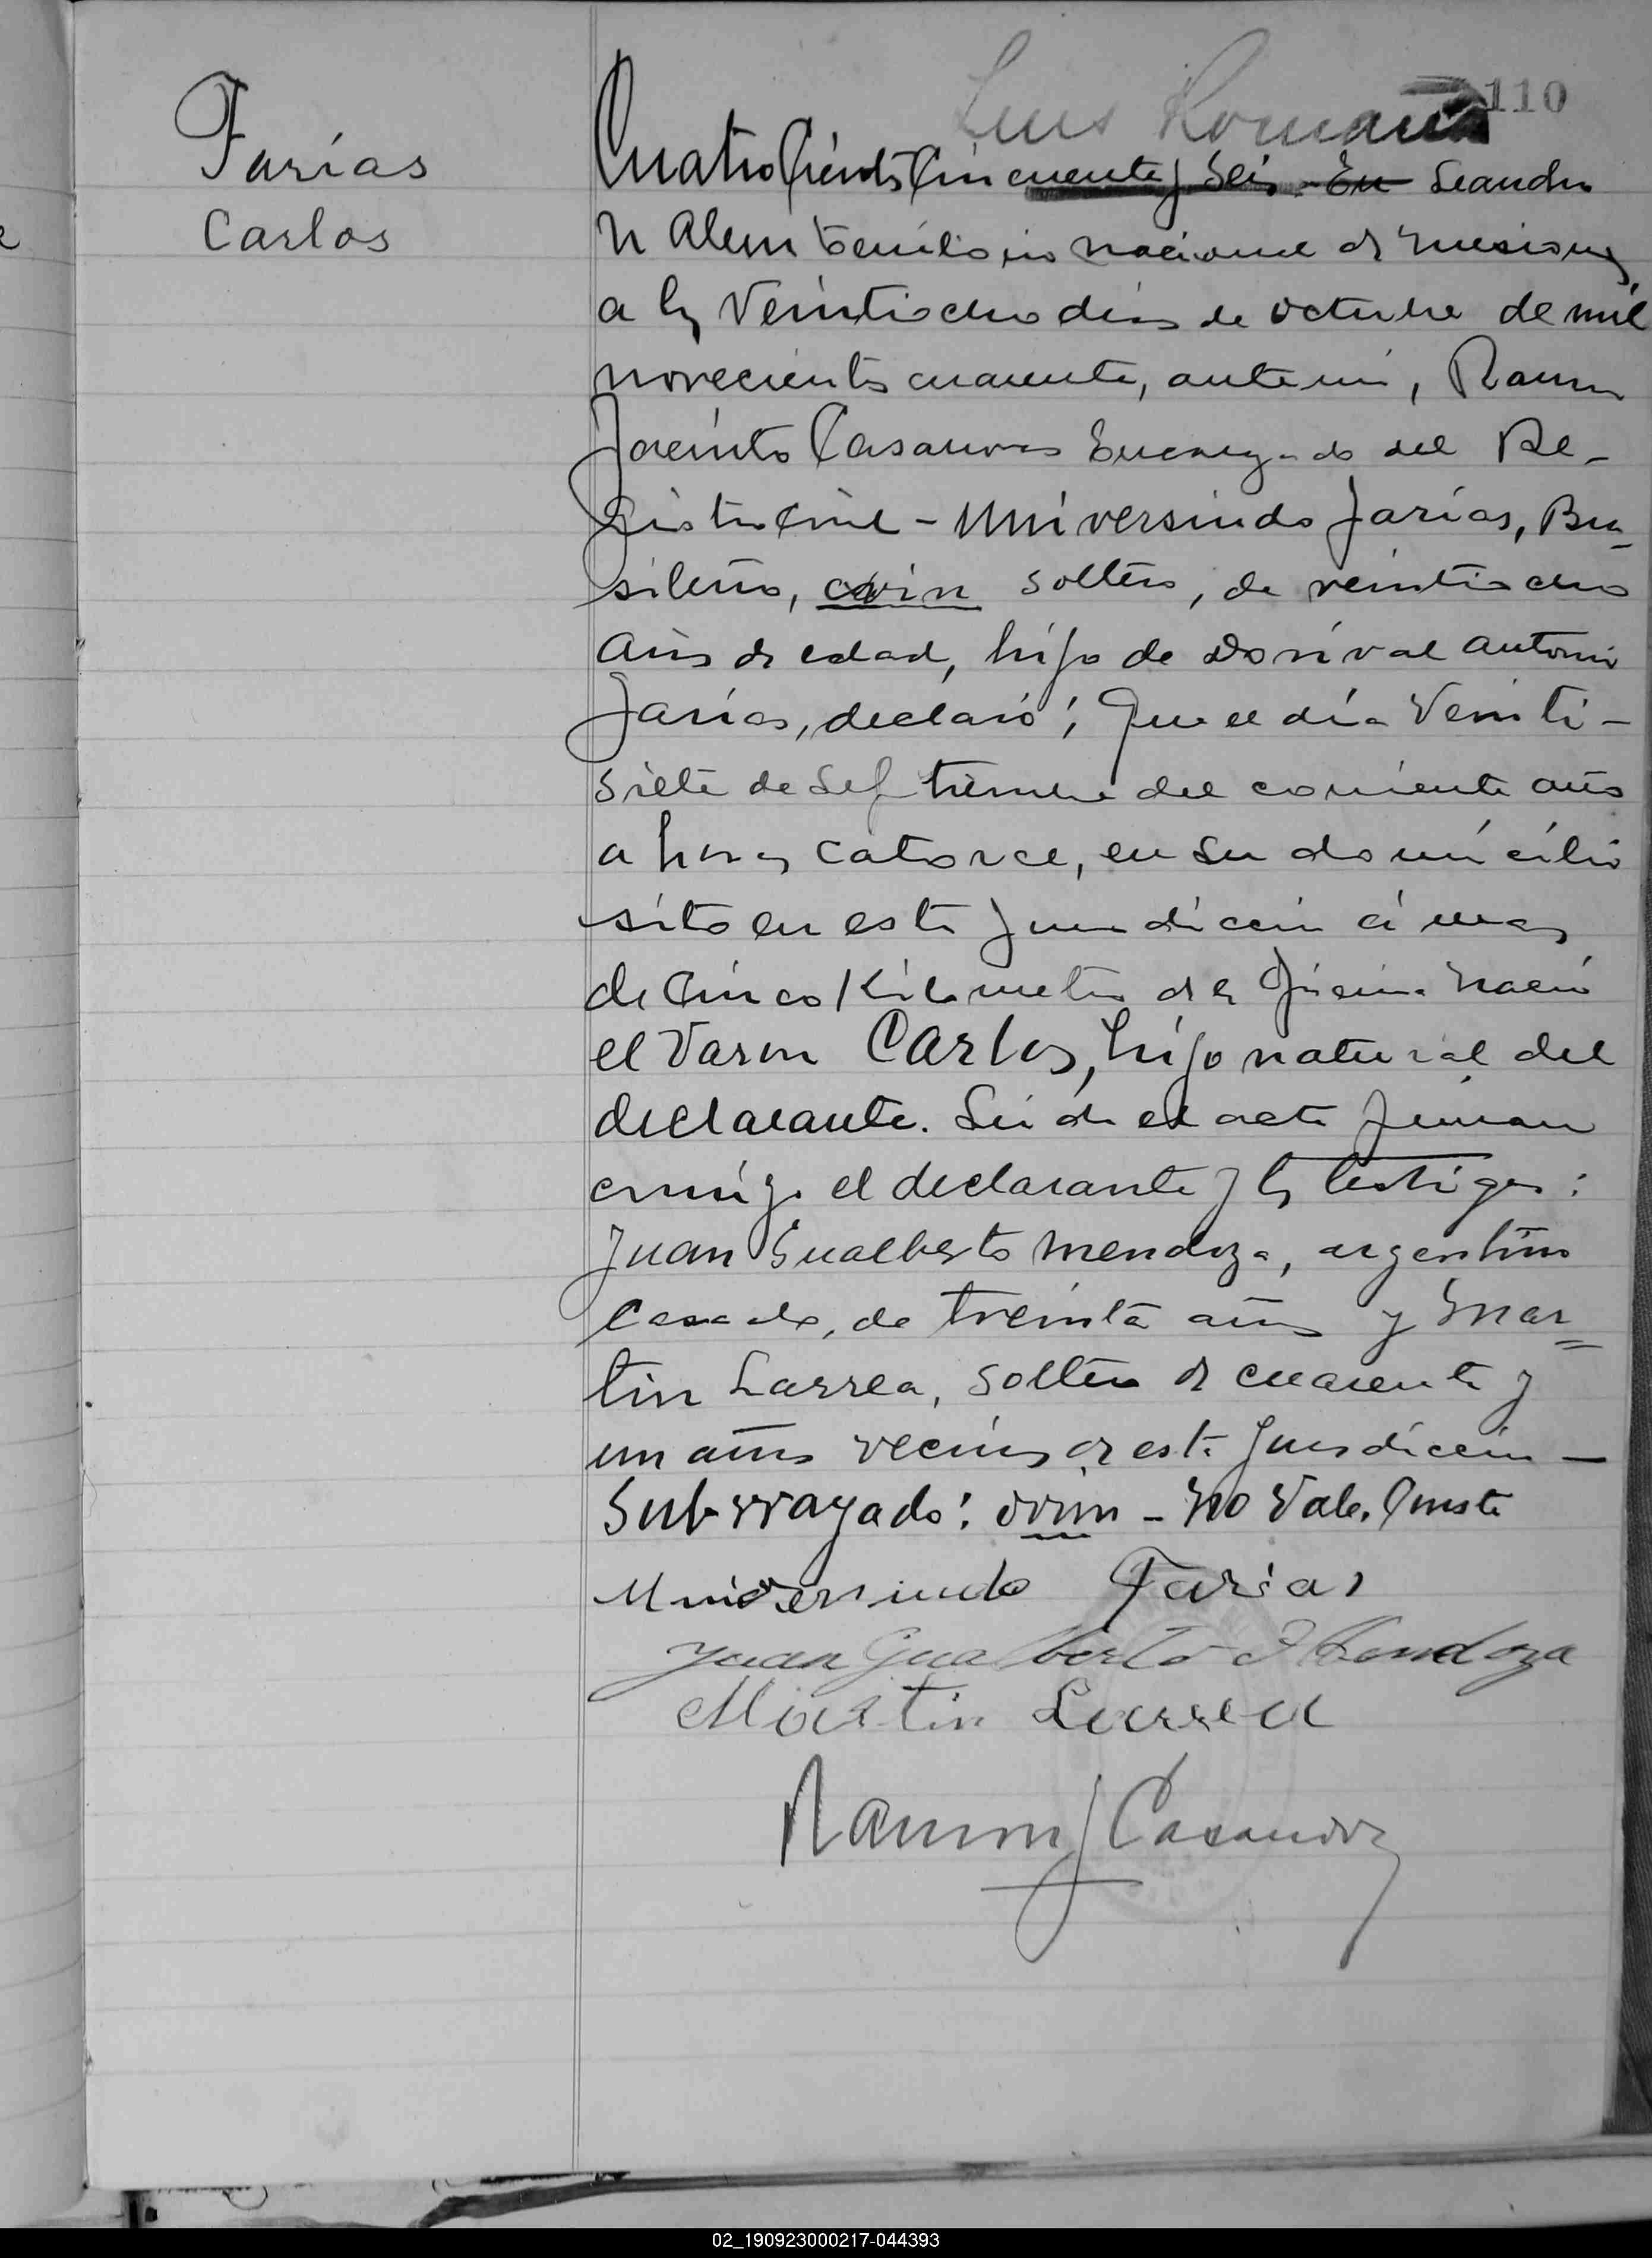 110
Luis Romano
Farías
Carlos
Cuatrocientos Cincuenta y Seis. En Leandro
N Alem territorio nacional de misiones,
a los Veintiocho dias de octubre de mil
novecientos cuarenta, ante mi, Ramon
Jacinto Casanova Encargado del Re-
gistro Civil - Universindo Farías, Bra-
sileño, soltero, de veintiocho
años de edad, hijo de Dorival Antonio
Farías, declaró; Que el día Veinti-
siete de Septiembre del corriente año
a horas catorce, en su domicilio
sito en esta Jurisdiccion a mas
de Cinco Kilometros de la Oficina nació
el Varon Carlos, hijo natural del
declarante. Leida el acta firman
conmigo el declarante y los testigos:
Juan Gualberto Mendoza, argentino
casado, de treinta años y Mar-
tin Larrea, soltero de cuarenta y
un años vecinos de esta Jurisdiccion -
Subrrayado: - No Vale. Conste
Universindo Farias
Juan Gualberto Mendoza
Martin Larrea
Ramon J Casanova
02_190923000217-044393